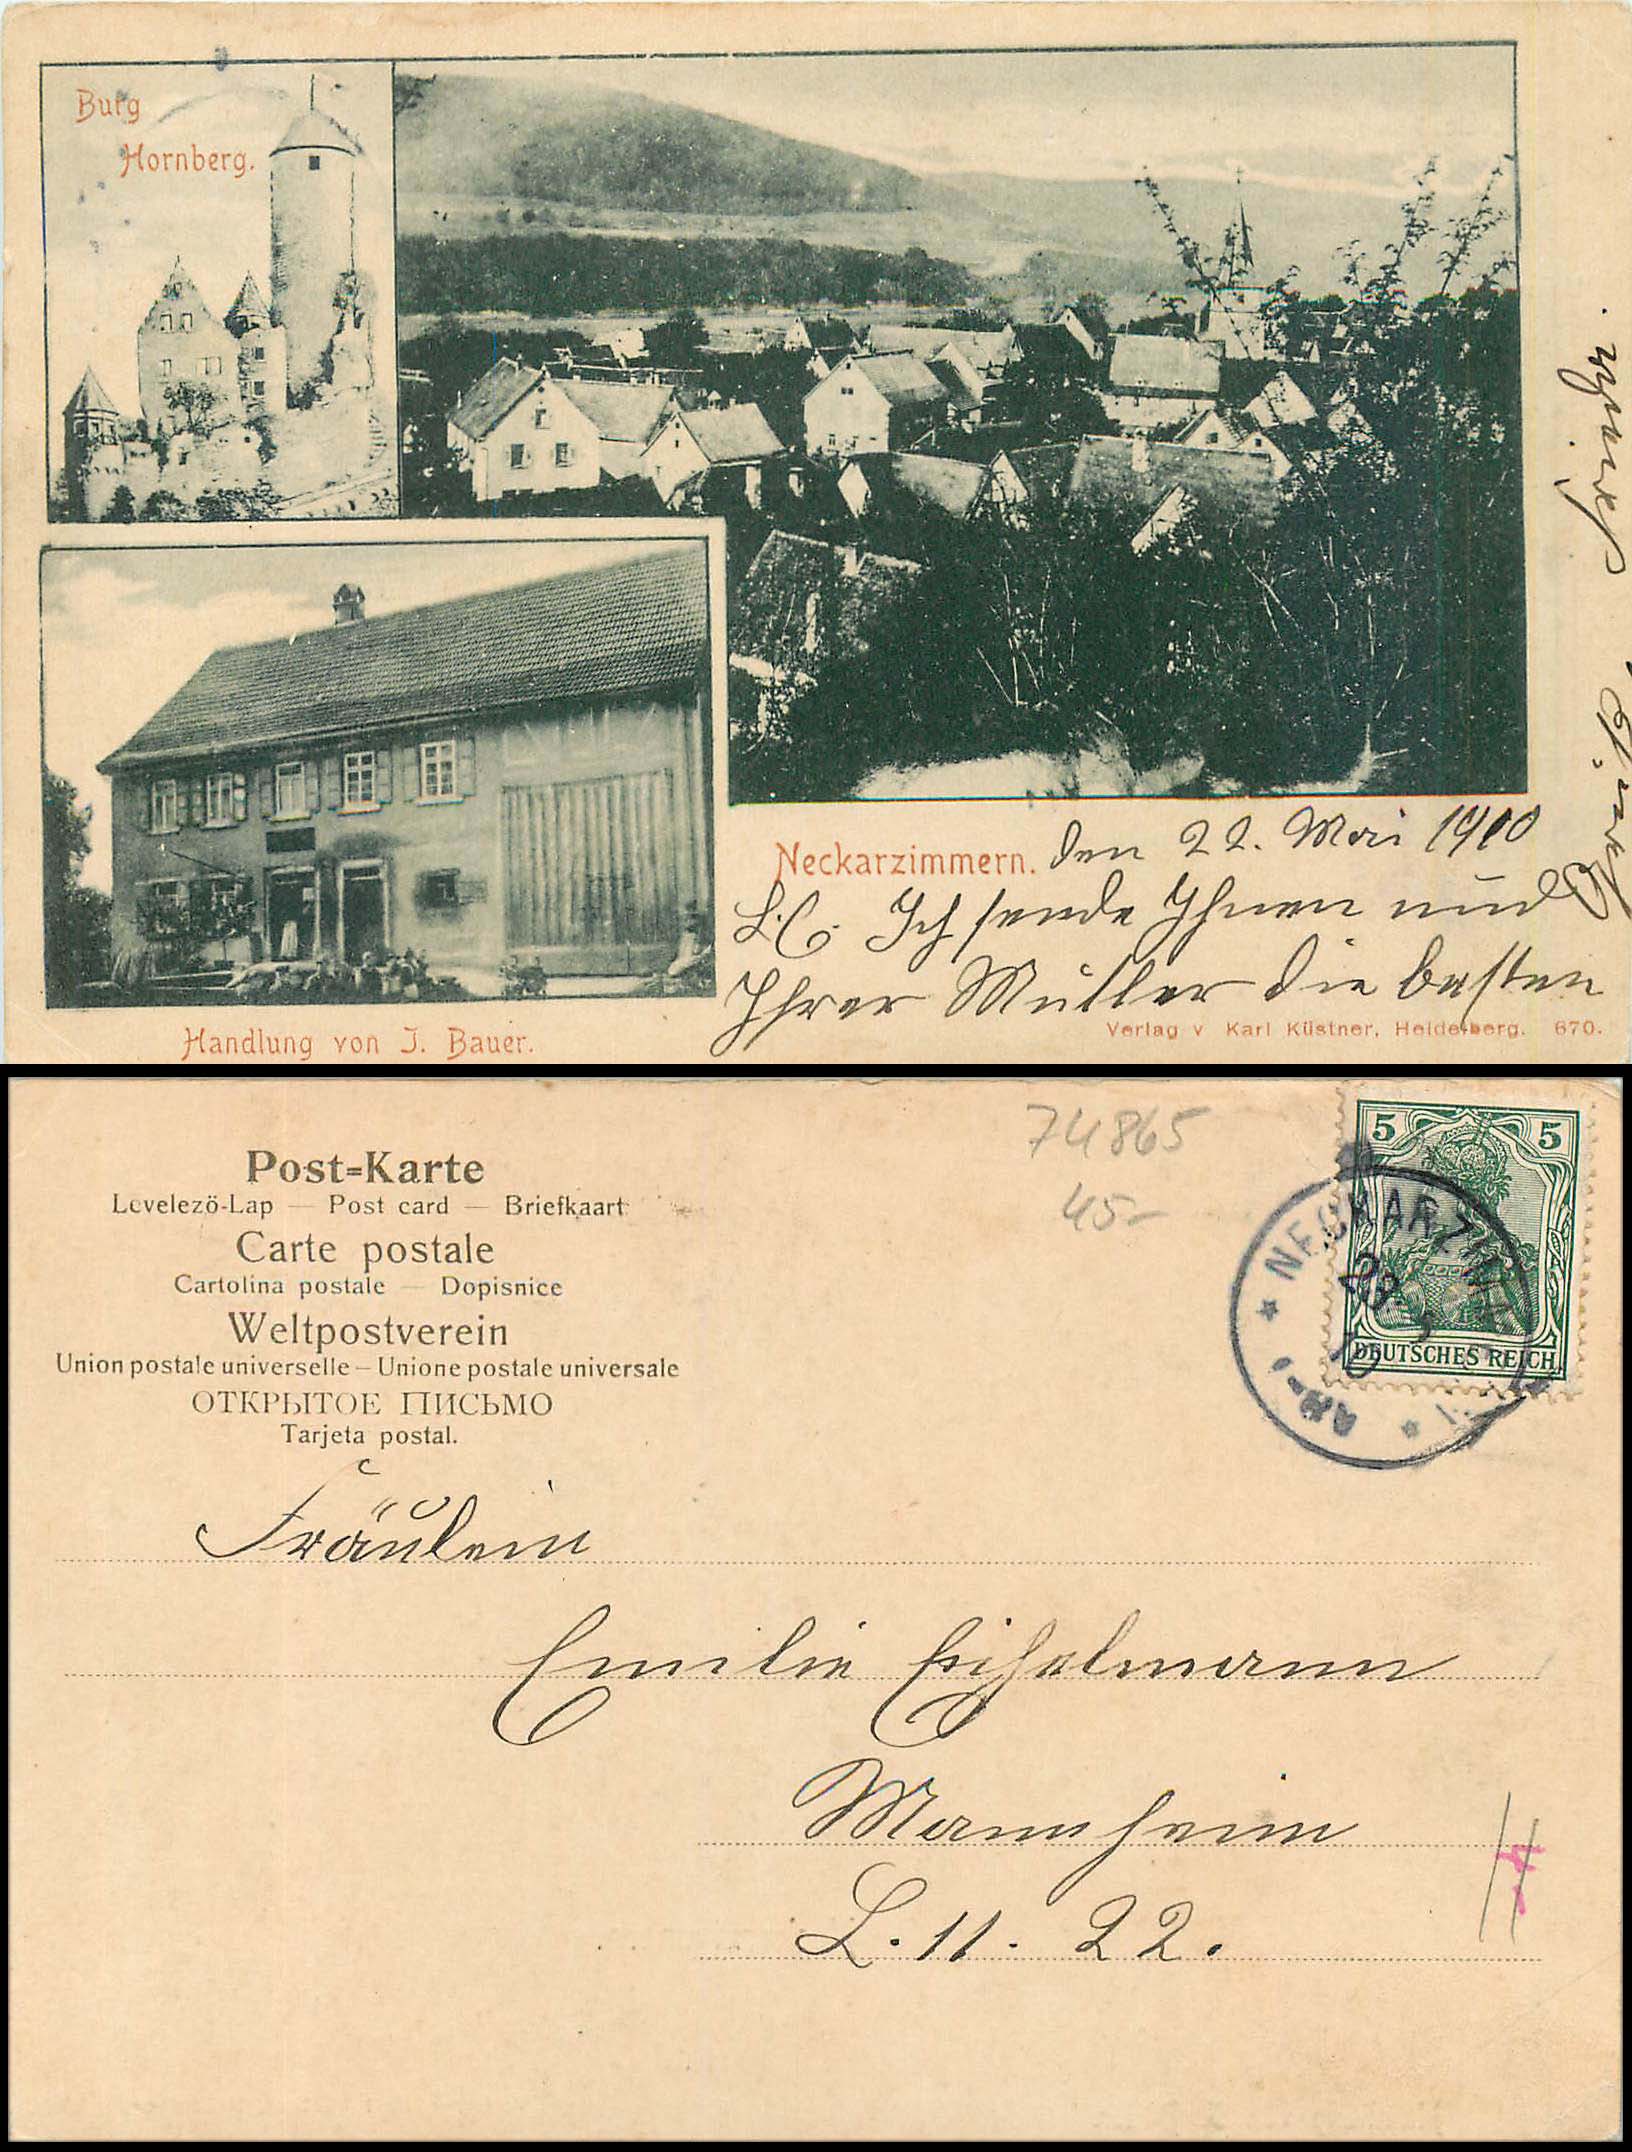 Burg
Hornberg.
Neckarzimmern. den 22. Mai 1910
L. E. Ich sende Ihnen und
Ihrer Mutter die besten
Verlag v Karl Küstner, Heidelberg. 670.
Handlung von J. Bauer.
74865
45-
Post=Karte
Levelezö-Lap — Post card — Briefkaart
Carte postale
Cartolina postale — Dopisnice
Weltpostverein
Union postale universelle – Unione postale universale
ОТКРЫТОЕ ПИСЬМО
Tarjeta postal.
5 5
DEUTSCHES REICH
NECKARZIMMERN
Fräulein
Emilie Eichelmann
Mannheim
L. 11. 22.